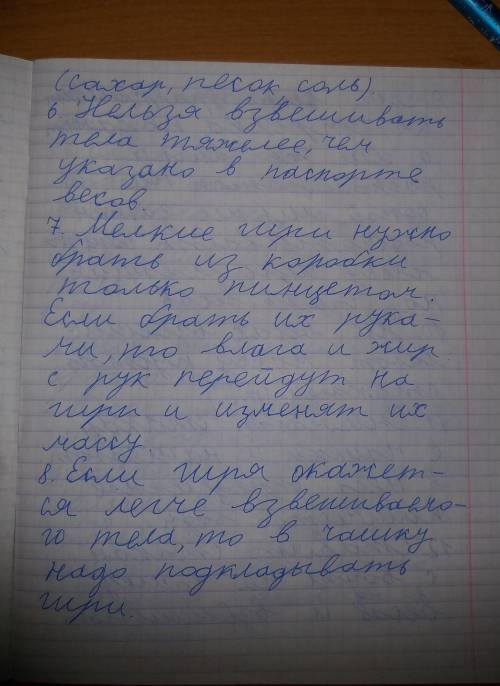 (сахар, песок, соль).
6 Нельзя взвешивать
тела тяжелее, чем
указано в паспорте
весов.
7. Мелкие гири нужно
брать из коробки
только пинцетом.
Если брать их рука-
ми, то влага и жир
с рук перейдут на
гири и изменят их
массу.
8. Если гиря окажет-
ся легче взвешиваемо-
го тела, то в чашку
надо подкладывать
гири.